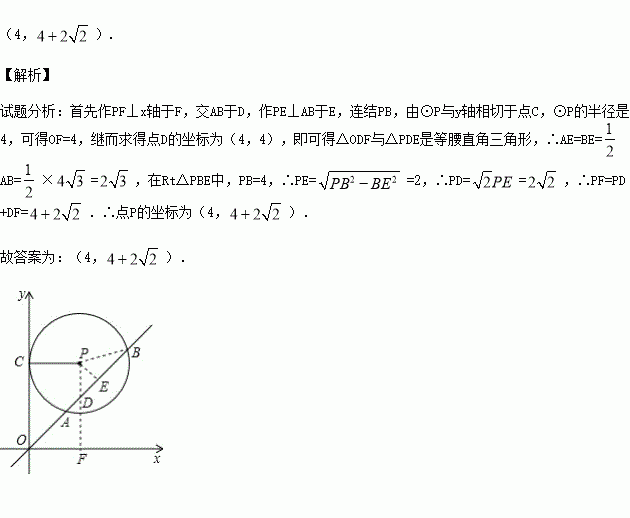 （4，4+2√2 ）．
【解析】
试题分析：首先作PF⊥x轴于F，交AB于D，作PE⊥AB于E，连结PB，由⊙P与y轴相切于点C，⊙P的半径是
4，可得OF=4，继而求得点D的坐标为（4，4），即可得△ODF与△PDE是等腰直角三角形，∴AE=BE=1/2
AB=1/2 ×4√3 =2√3 ，在Rt△PBE中，PB=4，∴PE=√(PB²−BE²) =2，∴PD=√2PE =2√2 ，∴PF=PD
+DF=4+2√2 ．∴点P的坐标为（4，4+2√2 ）．
故答案为：（4，4+2√2 ）．
y
C
P
B
E
D
A
O
F
x